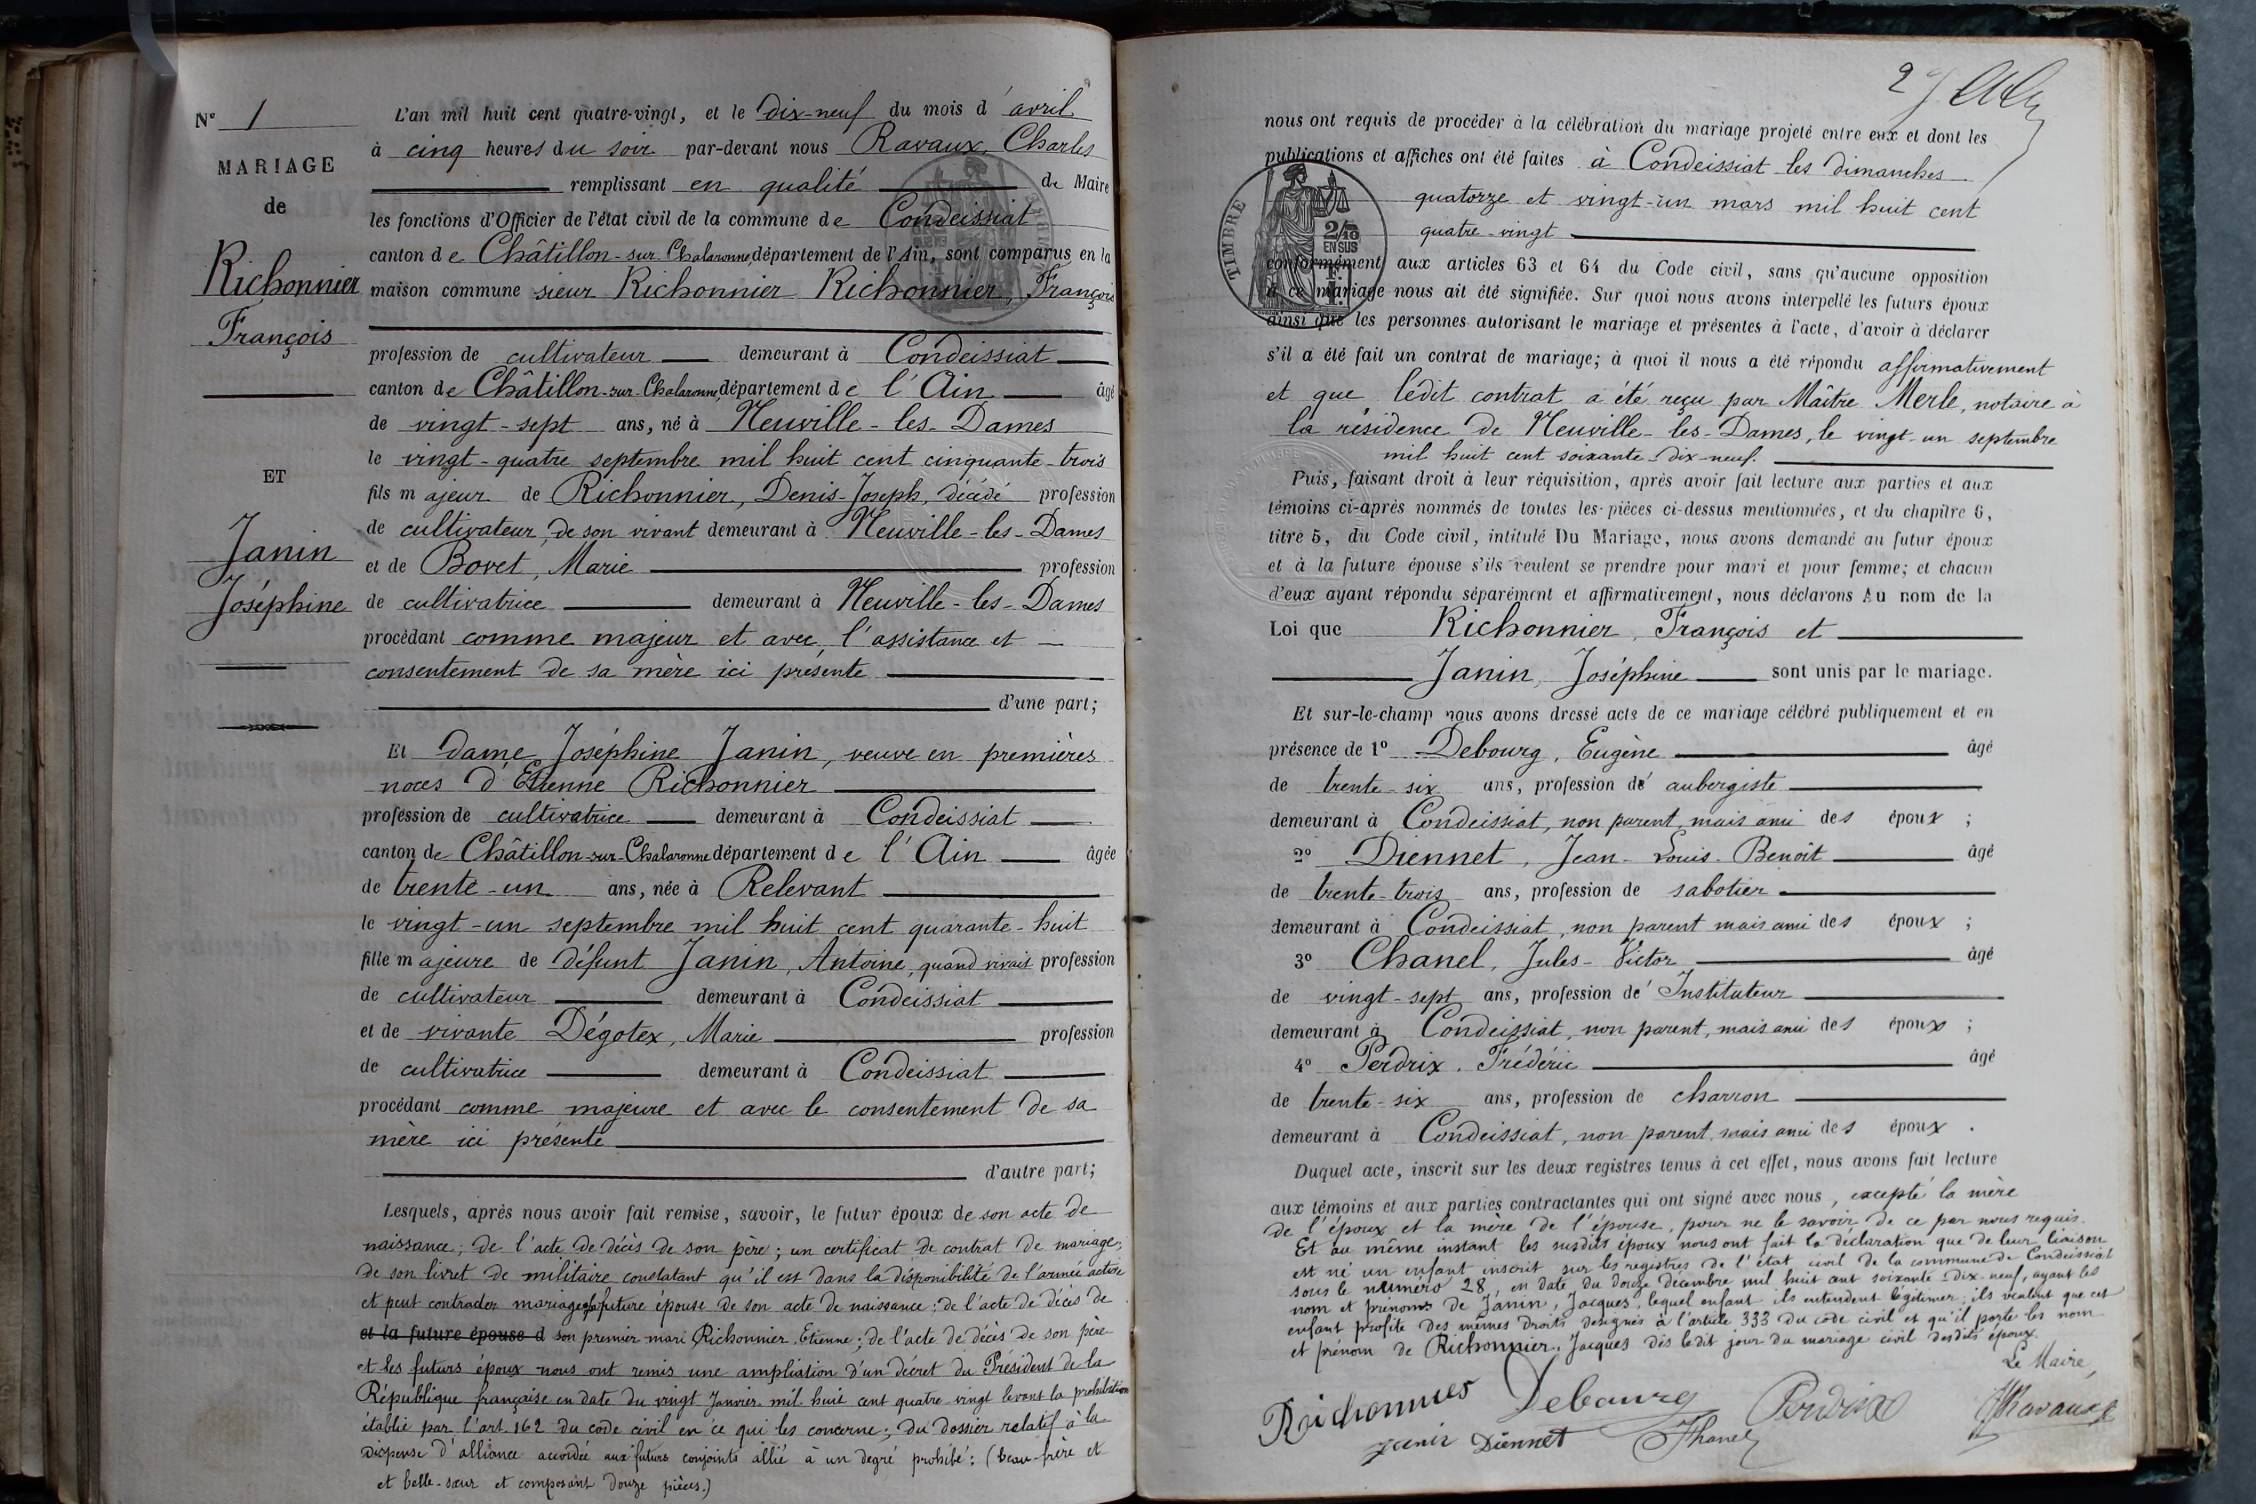 N° 1
MARIAGE
de
Richonnier
François
ET
Janin
Joséphine
L'an mil huit cent quatre-vingt, et le dix-neuf du mois d'avril
à cinq heures du soir par-devant nous Ravaux, Charles
remplissant en qualité de Maire
les fonctions d'Officier de l'état civil de la commune de Condeissiat
canton de Châtillon-sur-Chalaronne, département de l'Ain, sont comparus en la
maison commune sieur Richonnier Richonnier, François
profession de cultivateur demeurant à Condeissiat
canton de Châtillon-sur-Chalaronne, département de l'Ain âgé
de vingt-sept ans, né à Neuville-les-Dames
le vingt-quatre septembre mil huit cent cinquante-trois
fils majeur de Richonnier, Denis-Joseph, décédé profession
de cultivateur, de son vivant demeurant à Neuville-les-Dames
et de Bovet, Marie profession
de cultivatrice demeurant à Neuville-les-Dames
procédant comme majeur et avec l'assistance et
consentement de sa mère ici présente
d'une part;
Et dame Joséphine Janin, veuve en premières
noces d'Etienne Richonnier
profession de cultivatrice demeurant à Condeissiat
canton de Châtillon-sur-Chalaronne département de l'Ain âgée
de trente-un ans, née à Relevant
le vingt-un septembre mil huit cent quarante-huit
fille majeure de défunt Janin, Antoine, quand vivait profession
de cultivateur demeurant à Condeissiat
et de vivante Dégotex, Marie profession
de cultivatrice demeurant à Condeissiat
procédant comme majeure et avec le consentement de sa
mère ici présente
d'autre part;
Lesquels, après nous avoir fait remise, savoir, le futur époux de son acte de
naissance; de l'acte de décès de son père; un certificat de contrat de mariage;
de son livret de militaire constatant qu'il est dans la disponibilité de l'armée active
et peut contracter mariage; la future épouse de son acte de naissance; de l'acte de décès de
et la future épouse d son premier mari Richonnier, Etienne; de l'acte de décès de son père
et les futurs époux nous ont remis une ampliation d'un décret du Président de la
République française en date du vingt Janvier mil huit cent quatre-vingt levant la prohibition
établie par l'art. 162 du code civil en ce qui les concerne; du dossier relatif à la
dispense d'alliance accordée aux futurs conjoints allié à un degré prohibé: (beau-frère et
et belle-sœur et composant douze pièces.)
nous ont requis de procéder à la célébration du mariage projeté entre eux et dont les
publications et affiches ont été faites à Condeissiat les dimanches
quatorze et vingt-un mars mil huit cent
quatre-vingt
TIMBRE
2/10
EN SUS
conformément aux articles 63 et 64 du Code civil, sans qu'aucune opposition
à ce mariage nous ait été signifiée. Sur quoi nous avons interpellé les futurs époux
ainsi que les personnes autorisant le mariage et présentes à l'acte, d'avoir à déclarer
s'il a été fait un contrat de mariage; à quoi il nous a été répondu affirmativement
et que ledit contrat a été reçu par Maître Merle, notaire à
la résidence de Neuville-les-Dames, le vingt-un septembre
mil huit cent soixante-dix-neuf.
Puis, faisant droit à leur réquisition, après avoir fait lecture aux parties et aux
témoins ci-après nommés de toutes les pièces ci-dessus mentionnées, et du chapitre 6,
titre 5, du Code civil, intitulé Du Mariage, nous avons demandé au futur époux
et à la future épouse s'ils veulent se prendre pour mari et pour femme; et chacun
d'eux ayant répondu séparément et affirmativement, nous déclarons Au nom de la
Loi que Richonnier, François et
Janin, Joséphine sont unis par le mariage.
Et sur-le-champ nous avons dressé acte de ce mariage célébré publiquement et en
présence de 1° Debourg, Eugène âgé
de trente-six ans, profession d'aubergiste
demeurant à Condeissiat, non parent, mais ami des époux;
2° Diennet, Jean-Louis-Benoît âgé
de trente-trois ans, profession de sabotier
demeurant à Condeissiat, non parent mais ami des époux;
3° Chanel, Jules-Victor âgé
de vingt-sept ans, profession d'Instituteur
demeurant à Condeissiat, non parent, mais ami des époux;
4° Perdrix, Frédéric âgé
de trente-six ans, profession de charron
demeurant à Condeissiat, non parent, mais ami des époux.
Duquel acte, inscrit sur les deux registres tenus à cet effet, nous avons fait lecture
aux témoins et aux parties contractantes qui ont signé avec nous, excepté la mère
de l'époux et la mère de l'épouse, pour ne le savoir de ce par nous requis.
Et au même instant les susdits époux nous ont fait la déclaration que de leur liaison
est né un enfant inscrit sur les registres de l'état civil de la commune de Condeissiat
sous le numéro 28, en date du douze décembre mil huit cent soixante-dix-neuf, ayant les
nom et prénoms de Janin, Jacques, lequel enfant ils entendent légitimer; ils veulent que cet
enfant profite des mêmes droits designés à l'article 333 du code civil et qu'il porte les nom
et prénom de Richonnier, Jacques dès ledit jour du mariage civil desdits époux.
Le Maire,
Richonnier Debourg Perdrix Ravaux
Janin Diennet Chanel